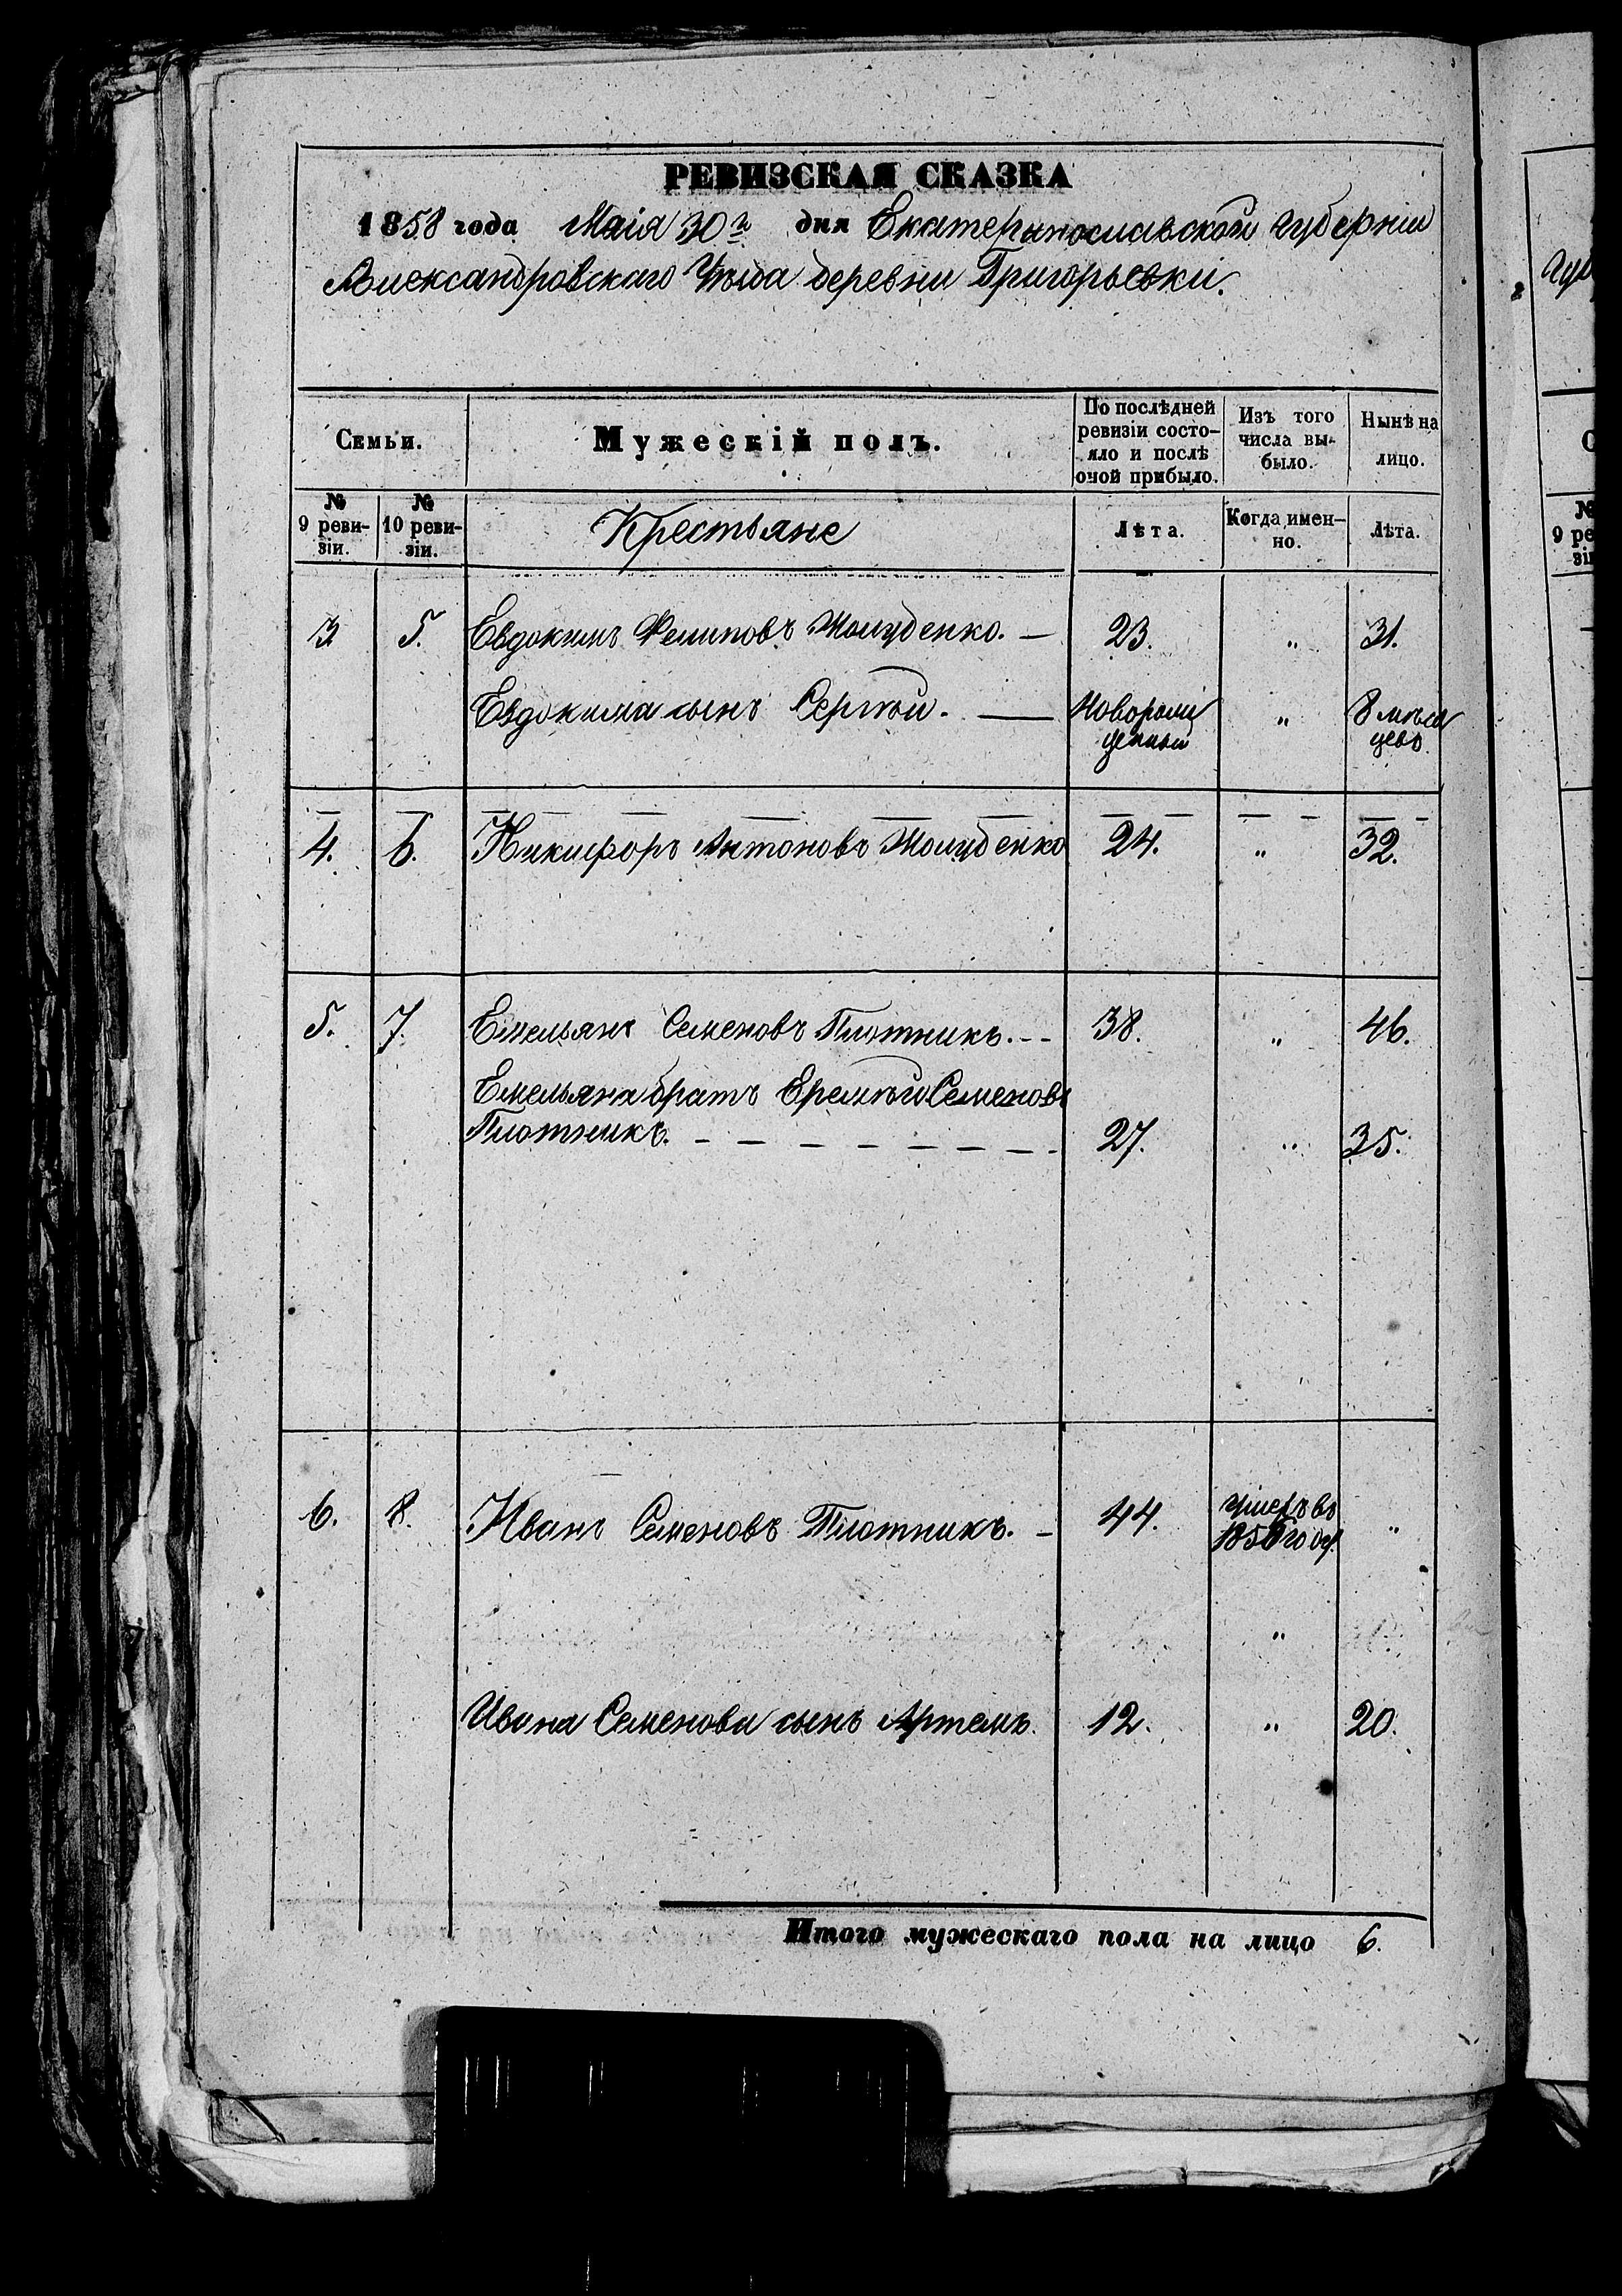 РЕВИЗСКАЯ СКАЗКА
1858 года Маія 30го дня Екатеринославской губерніи
Александровскаго Уѣзда деревни Григорьевки.
Семьи.
Мужескій полъ.
По послѣдней ревизіи состо-
яло и послѣ оной прибыло.
Изъ того числа вы-
было.
Нынѣ на лицо.
№ 9 реви-
зіи.
№ 10 реви-
зіи.
Крестьяне
Лѣта.
Когда имен-
но.
Лѣта.
3 5. Евдокимъ Филиповъ 23. " 31.
Евдокима сынъ Сергѣй. Новорож
денный " 8 мѣся
цевъ
4. 6. Никифоръ Антоновъ 24. " 32.
5. 7. Емельянъ Семеновъ Плотникъ. 38. " 46.
Емельяна братъ Семеновъ
Плотникъ. 27. " 35.
6. 8. Иванъ Семеновъ Плотникъ. 44. умеръ въ
году. "
"
Ивана Семенова сынъ Артемъ. 12. " 20.
Итого мужескаго пола на лицо 6.
9 ре
зі